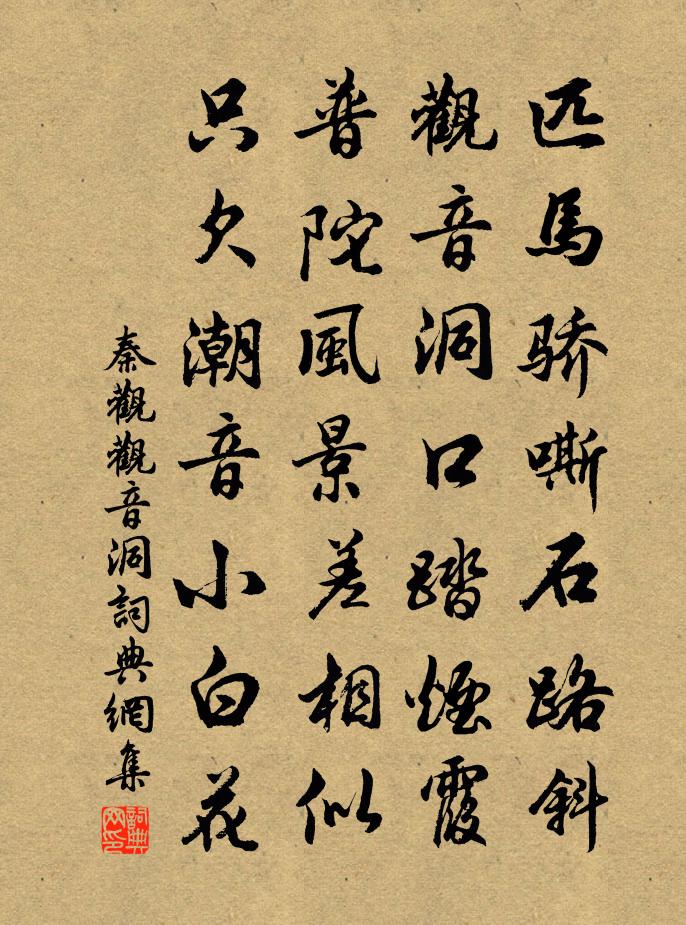 匹馬骄嘶石路斜
觀音洞口踏煙霞
普陀風景差相似
只欠潮音小白花
秦觀觀音洞詞典網集
詞典网印